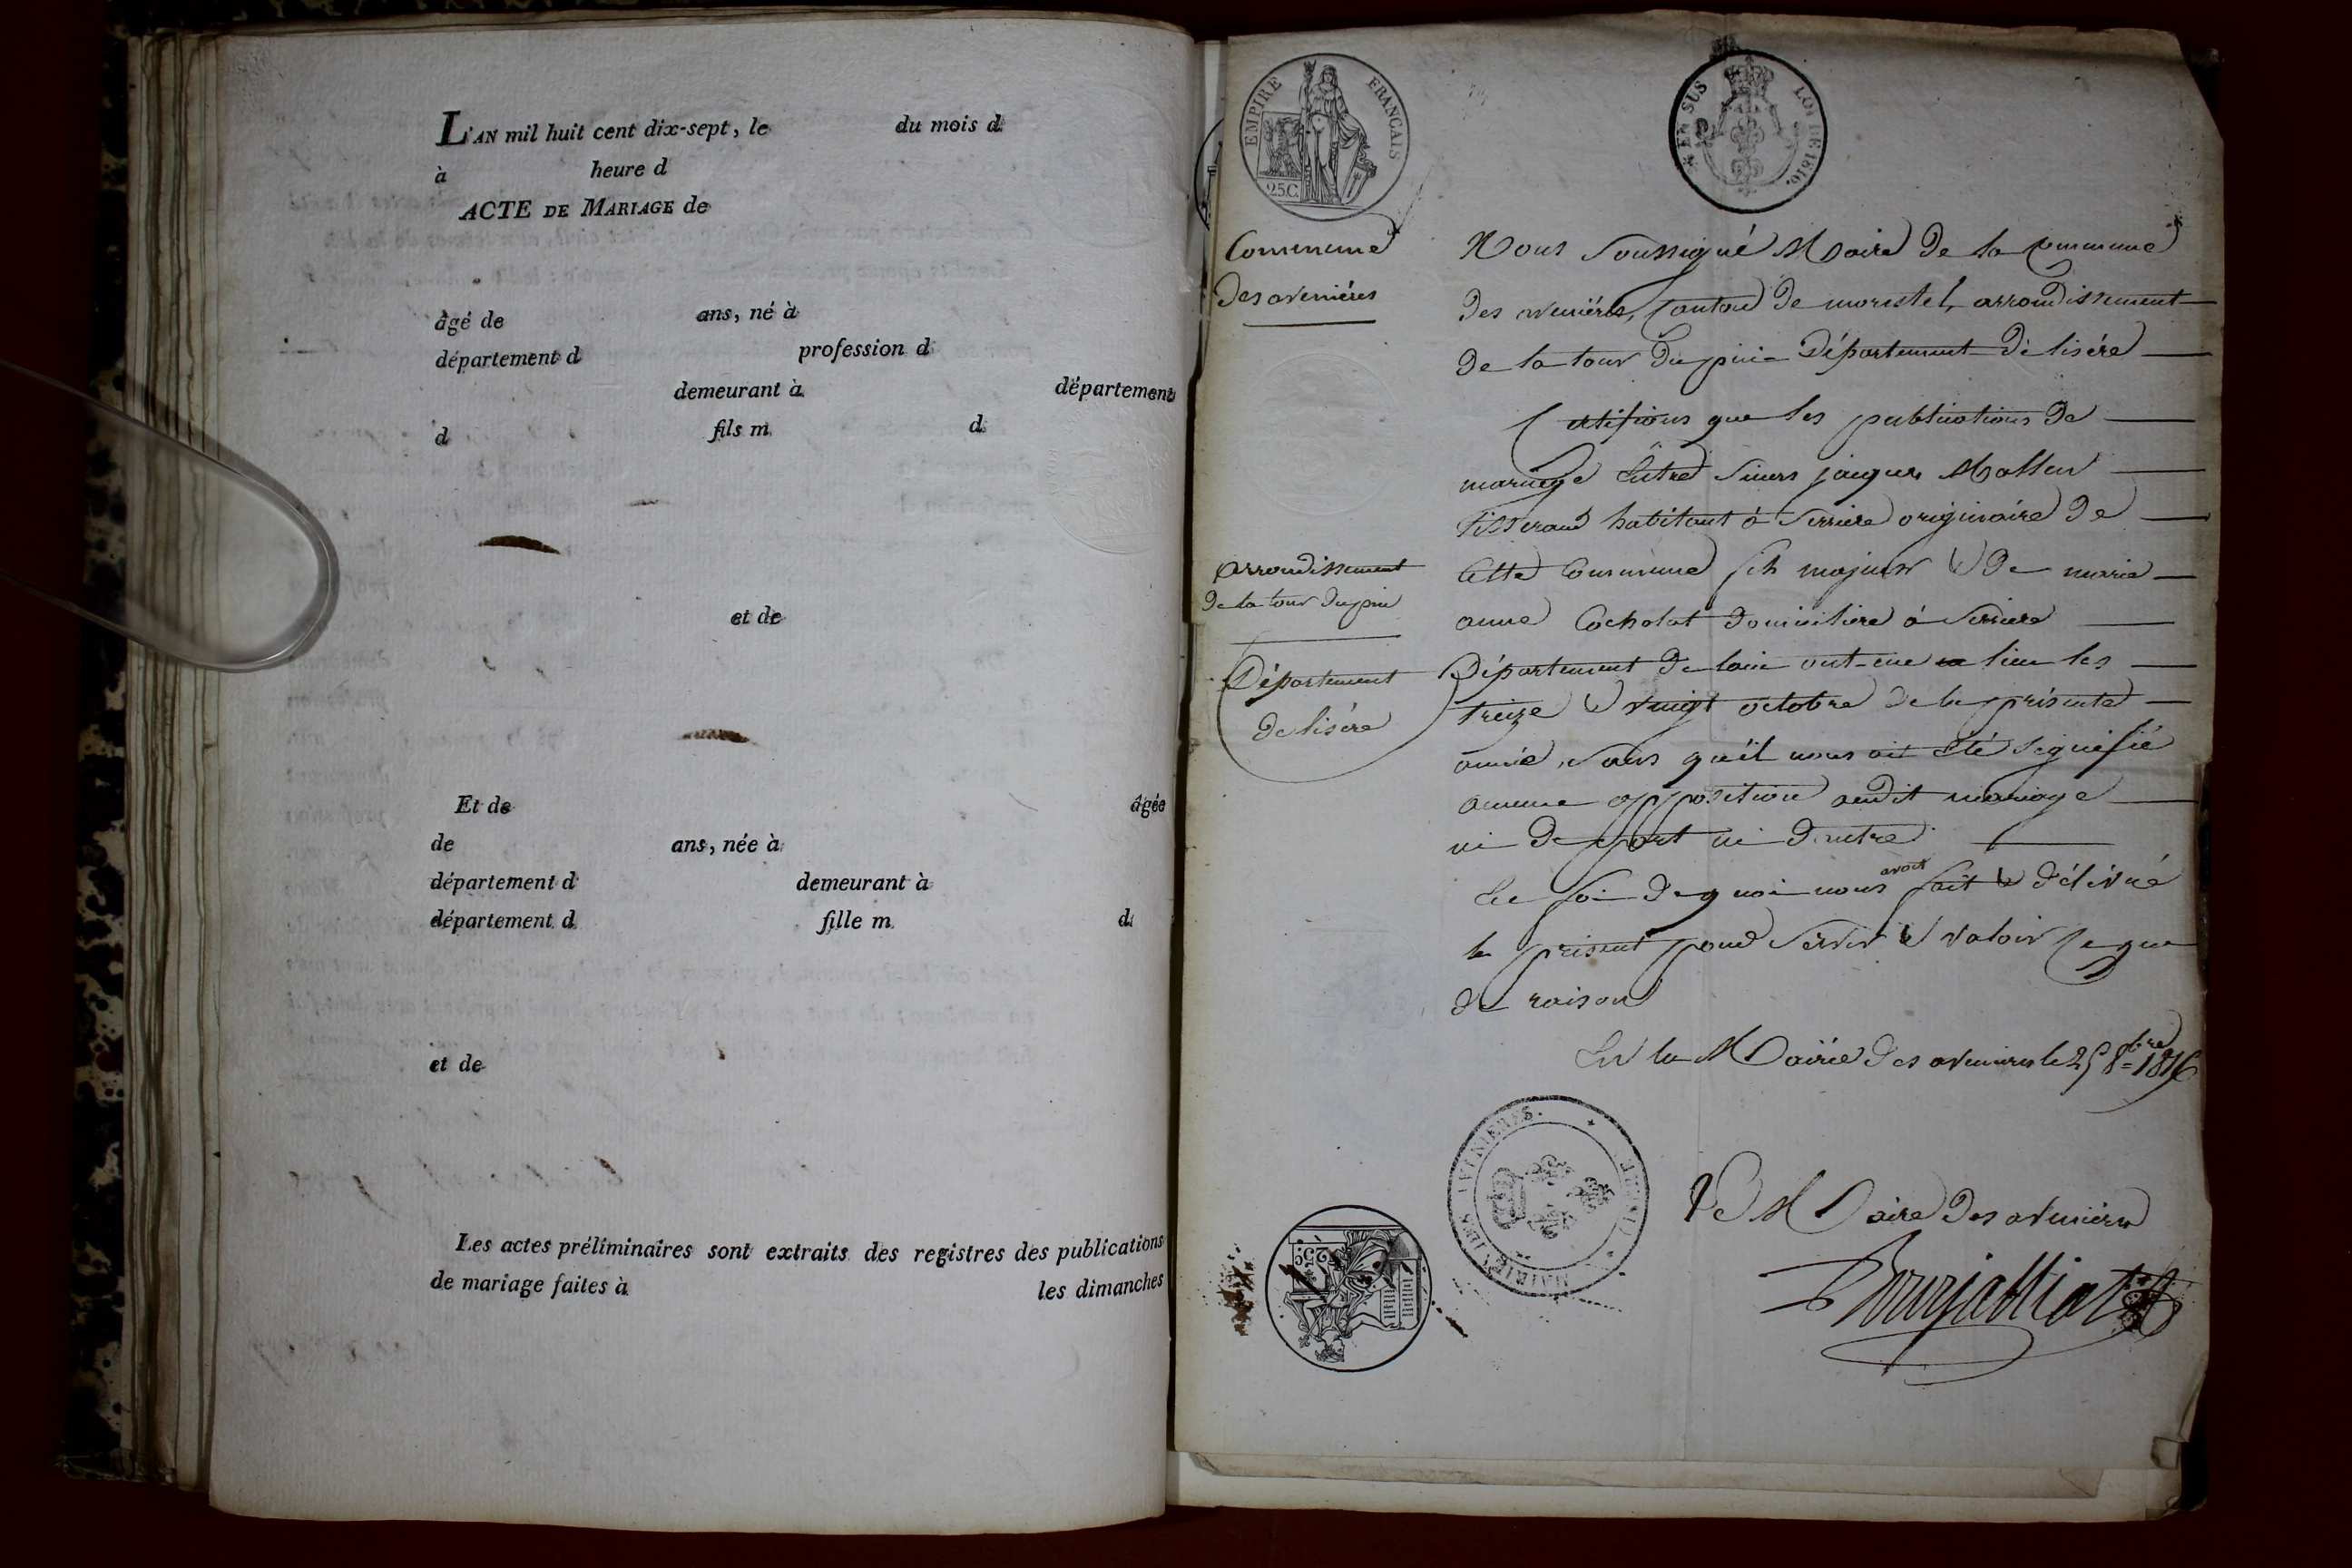 L'AN mil huit cent dix-sept, le du mois d
à heure d
ACTE DE MARIAGE de
âgé de ans, né à
département d profession d
demeurant à département
d fils m d
et de
Et de âgée
de ans, née à
département d demeurant à
département d fille m d
et de
Les actes préliminaires sont extraits des registres des publications
de mariage faites à les dimanches
EMPIRE FRANÇAIS
25C.
EN SUS LOI DE 1816.
Commune
Des avenières
arrondissement
De la tour Dupin
Département
De lisére
Nous Soussigné Maire De la Commune
Des avenières, Canton De morestel, arrondissement
De la tour Du pin Département De lisére
Certifions que les publications De
mariage Entre Sieurs jacques
tisserand habitant à Serriere originaire De
Cette Commune fils majeur & De marie
anne Cocholat Domiciliere à Serriere
Département De lain ont eue lieu les
treize & vingt octobre De la présente
année, Sans qu'il nous ait été Signifié
aucune opposition audit mariage
ni De part ni D'autre
En foi De quoi nous avons fait & Délivré
le présent pour Servir & valoir Ce que
De raison
En la Mairie Des avenieres le 25 8bre 1816
MAIRIE DES AVENIERES. (ISERE)
25C.
Le Maire Des avenières